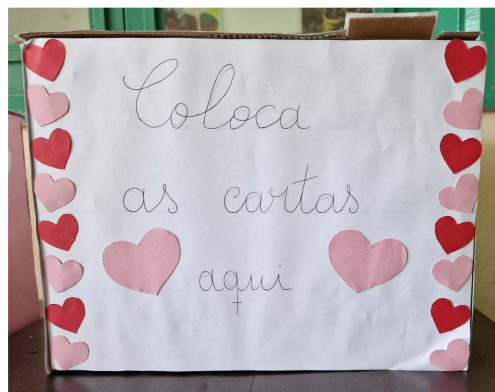 Coloca
as cartas
aqui